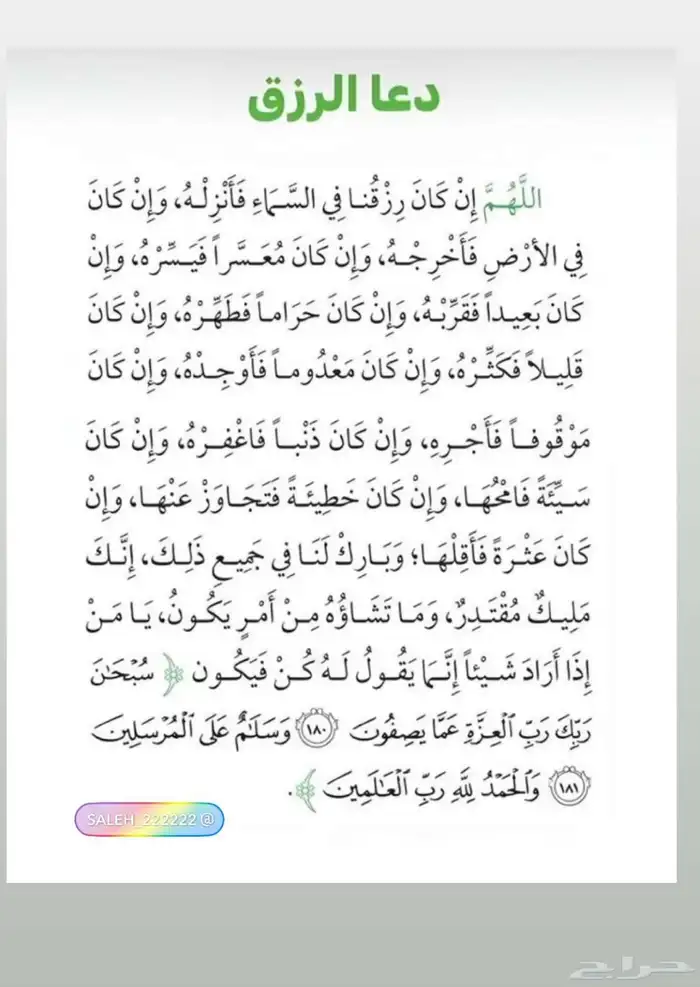 دعا الرزق
اللَّهُمَّ إِنْ كَانَ رِزْقُنا فِي السَّمَاءِ فَأَنْزِلْهُ، وَإِنْ كَانَ
فِي الأرْضِ فَأَخْرِجْهُ، وَإِنْ كَانَ مُعَسَّراً فَيَسِّرْهُ، وَإِنْ
كَانَ بَعِيداً فَقَرِّبْهُ، وَإِنْ كَانَ حَرَاماً فَطَهِّرْهُ، وَإِنْ كَانَ
قَلِيلاً فَكَثِّرْهُ، وَإِنْ كَانَ مَعْدُوماً فَأَوْجِدْهُ، وَإِنْ كَانَ
مَوْقُوفاً فَأَجْرِهِ، وَإِنْ كَانَ ذَنْباً فَاغْفِرْهُ، وَإِنْ كَانَ
سَيِّئَةً فَامْحُهَا، وَإِنْ كَانَ خَطِيئَةً فَتَجَاوَزْ عَنْهَا، وَإِنْ
كَانَ عَثْرَةً فَأَقِلْهَا؛ وَبَارِكْ لَنَا فِي جَمِيعِ ذَلِكَ، إِنَّكَ
مَلِيكٌ مُقْتَدِرٌ، وَمَا تَشَاؤُهُ مِنْ أَمْرٍ يَكُونُ، يَا مَنْ
إِذَا أَرَادَ شَيْئاً إِنَّمَا يَقُولُ لَهُ كُنْ فَيَكُون ﴿ سُبْحَٰنَ
رَبِّكَ رَبِّ الْعِزَّةِ عَمَّا يَصِفُونَ ١٨٠ وَسَلَٰمٌ عَلَى الْمُرْسَلِينَ
١٨١ وَالْحَمْدُ لِلَّهِ رَبِّ الْعَٰلَمِينَ ﴾.
@SALEH_222222
حراج